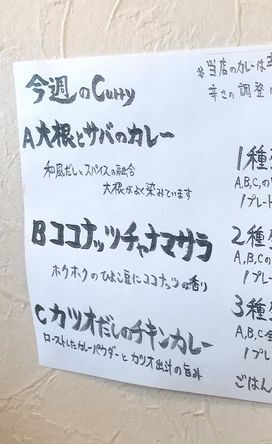 今週のCurry
A 大根とサバのカレー
和風だしとスパイスの融合
大根がよく染みています
B ココナッツチャナマサラ
ホクホクのひよこ豆にココナッツの香り
C カツオだしのチキンカレー
ローストしたカレーパウダーとカツオ出汁の旨み
※当店のカレーは
辛さの調整
1種
A,B,Cの
1プレート
2種
A,B,Cの
1プ
3種
A,B,C全
1プレ
ごはん